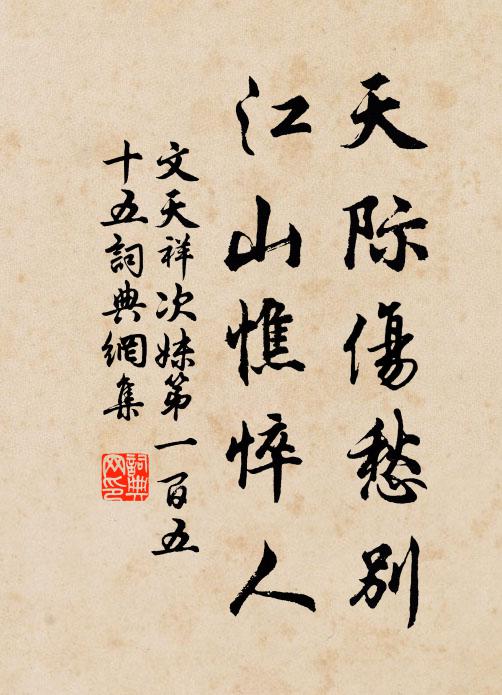 天际傷愁別
江山憔悴人
文天祥次妹第一百五
十五詞典網集
詞典
网印